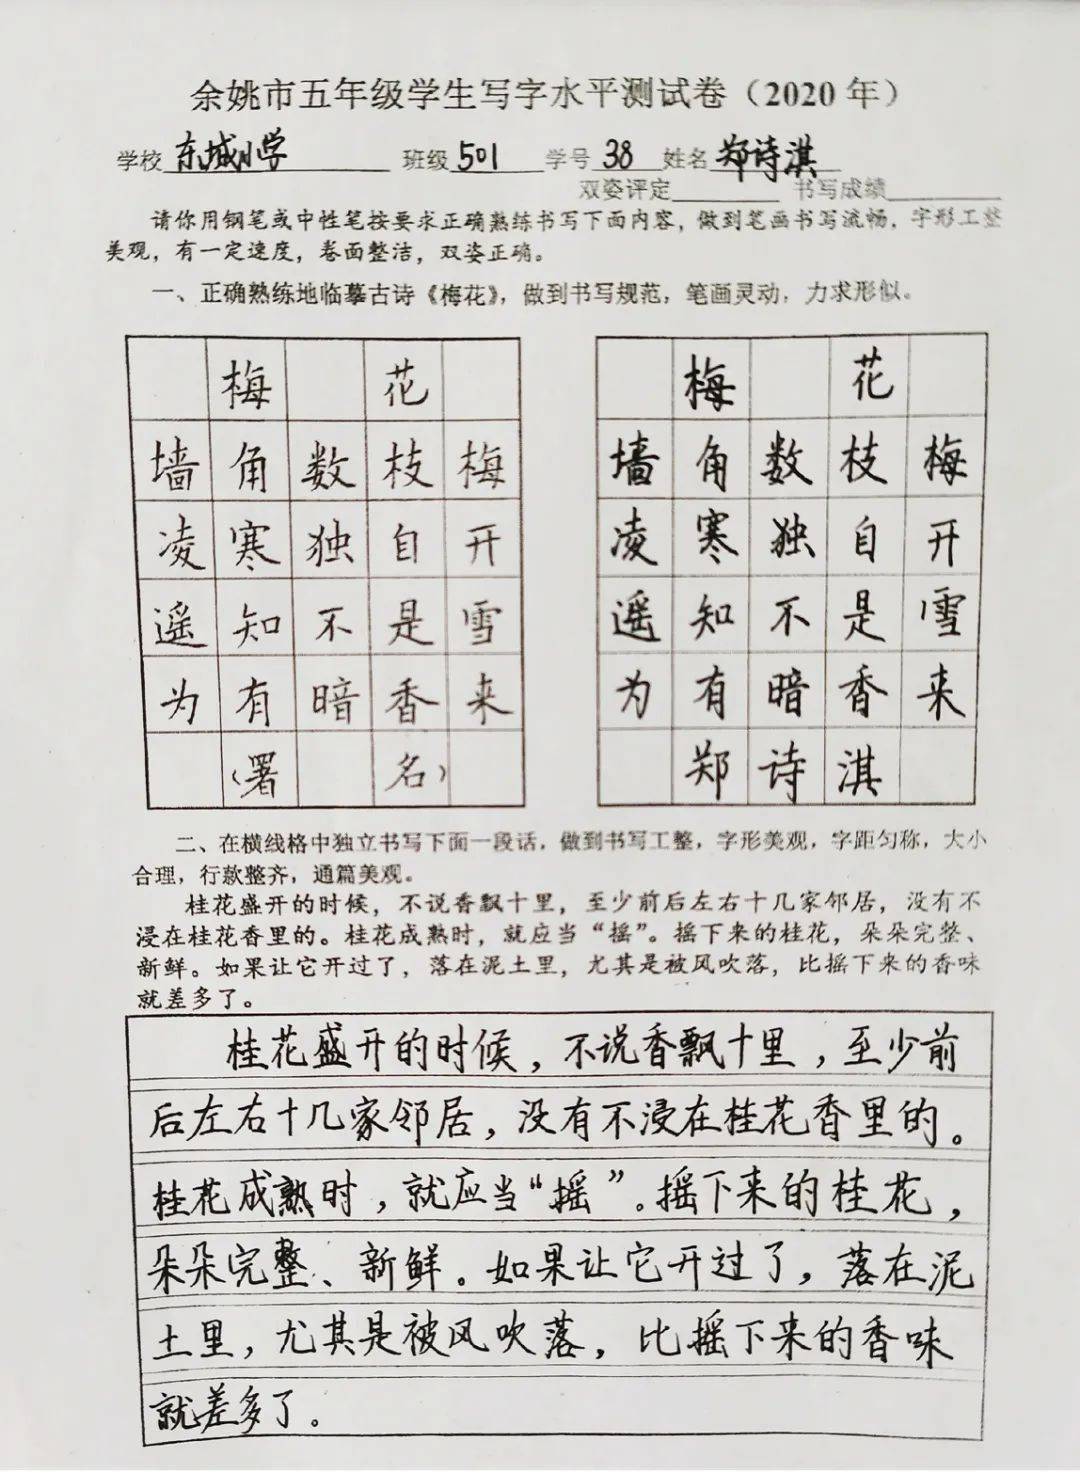 余姚市五年级学生写字水平测试卷（2020 年）
学校 东城小学 班级 501 学号 38 姓名 郑诗淇
双姿评定 书写成绩
请你用钢笔或中性笔按要求正确熟练书写下面内容，做到笔画书写流畅，字形工整
美观，有一定速度，卷面整洁，双姿正确。
一、正确熟练地临摹古诗《梅花》，做到书写规范，笔画灵动，力求形似。
梅花
墙角数枝梅
凌寒独自开
遥知不是雪
为有暗香来
（署名）
梅花
墙角数枝梅
凌寒独自开
遥知不是雪
为有暗香来
郑诗淇
二、在横线格中独立书写下面一段话，做到书写工整，字形美观，字距匀称，大小
合理，行款整齐，通篇美观。
桂花盛开的时候，不说香飘十里，至少前后左右十几家邻居，没有不
浸在桂花香里的。桂花成熟时，就应当“摇”。摇下来的桂花，朵朵完整、
新鲜。如果让它开过了，落在泥土里，尤其是被风吹落，比摇下来的香味
就差多了。
桂花盛开的时候，不说香飘十里，至少前
后左右十几家邻居，没有不浸在桂花香里的。
桂花成熟时，就应当“摇”。摇下来的桂花，
朵朵完整、新鲜。如果让它开过了，落在泥
土里，尤其是被风吹落，比摇下来的香味
就差多了。